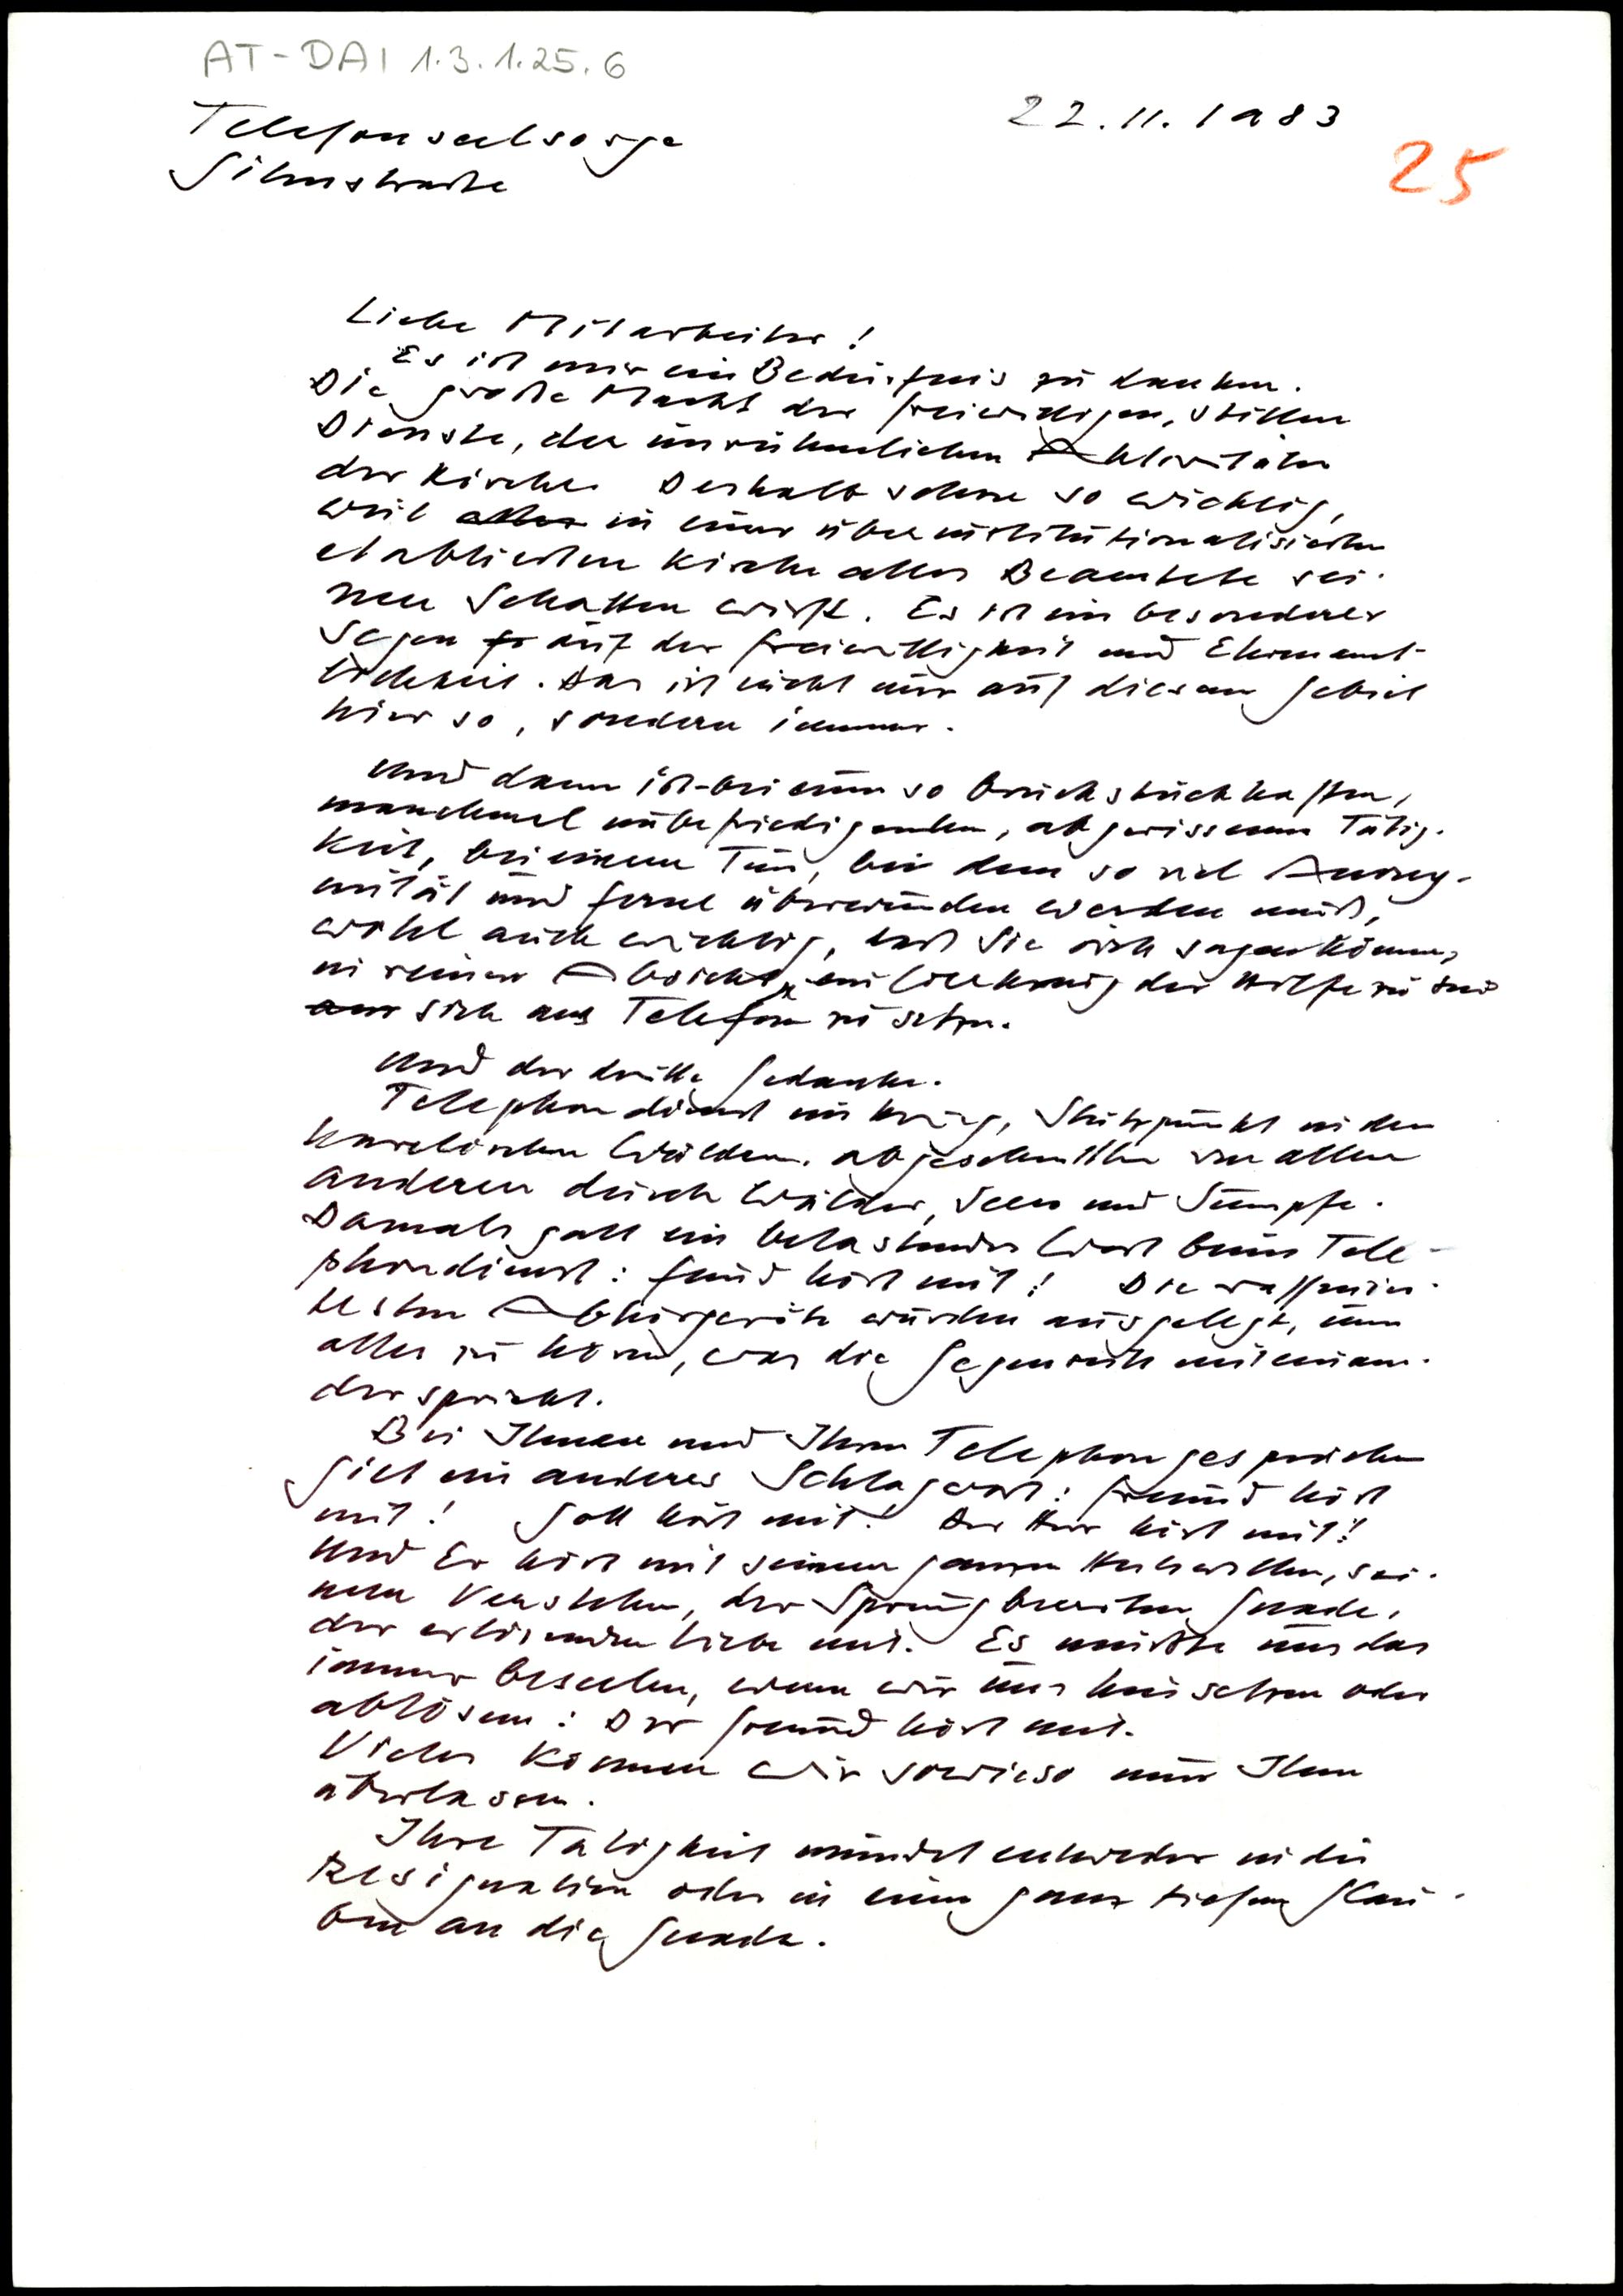 AT-DAI 1.3.1.25.6
22.11.1983
Telefonseelsorge
Sillstraße
25
Liebe Mitarbeiter!
Es ist mir ein Bedürfnis zu danken.
Die große Macht der freiwilligen, stillen
Dienste, der unrühmlichen Aktivitäten
der Kirche. Deshalb schon so wichtig,
weil alles in einer überinstitutionalisierten
etablierten Kirche alles Beamtete sei-
nen Schatten wirft. Es ist ein besonderer
Segen auf der Freiwilligkeit und Ehrenamt-
lichkeit. Das ist nicht nur auf diesem Gebiet
hier so, sondern immer.
Und dann ist bei einer so bruchstückhaften,
manchmal unbefriedigenden, abgerissenen Tätig-
keit, bei einem Tun, bei dem so viel Anony-
mität und Ferne überwunden werden muß,
wohl auch wichtig, daß Sie sich sagen können,
in reiner Absicht, ein der Hilfe zu sein
sich ans Telefon zu setzen.
Und der dritte Gedanke.
Telephondienst im Krieg, Stützpunkt in den
karelischen Wäldern. abgeschnitten von allen
anderen durch Wälder, Seen und Sümpfe.
Damals galt ein belastendes Wort beim Tele-
phondienst: Feind hört mit! Die raffinier-
testen Abhörgeräte wurden ausgelegt, um
alles zu hören, was die Gegenseite miteinan-
der spricht.
Bei Ihnen und Ihren Telephongesprächen
gilt ein anderes Schlagwort: Freund hört
mit! Gott hört mit! Der Herr hört mit!
Und Er hört mit seinem ganzen Heilswillen, sei-
nem Verstehen, der sprungbereiten Gnade,
der erlösenden Liebe mit. Es müßte uns das
immer beseelen, wenn wir uns hinsetzen oder
ablösen: Der Freund hört mit.
Vieles können wir sowieso nur Ihm
überlassen.
Ihre Tätigkeit mündet entweder in die
Resignation oder in einen ganz tiefen Glau-
ben an die Gnade.